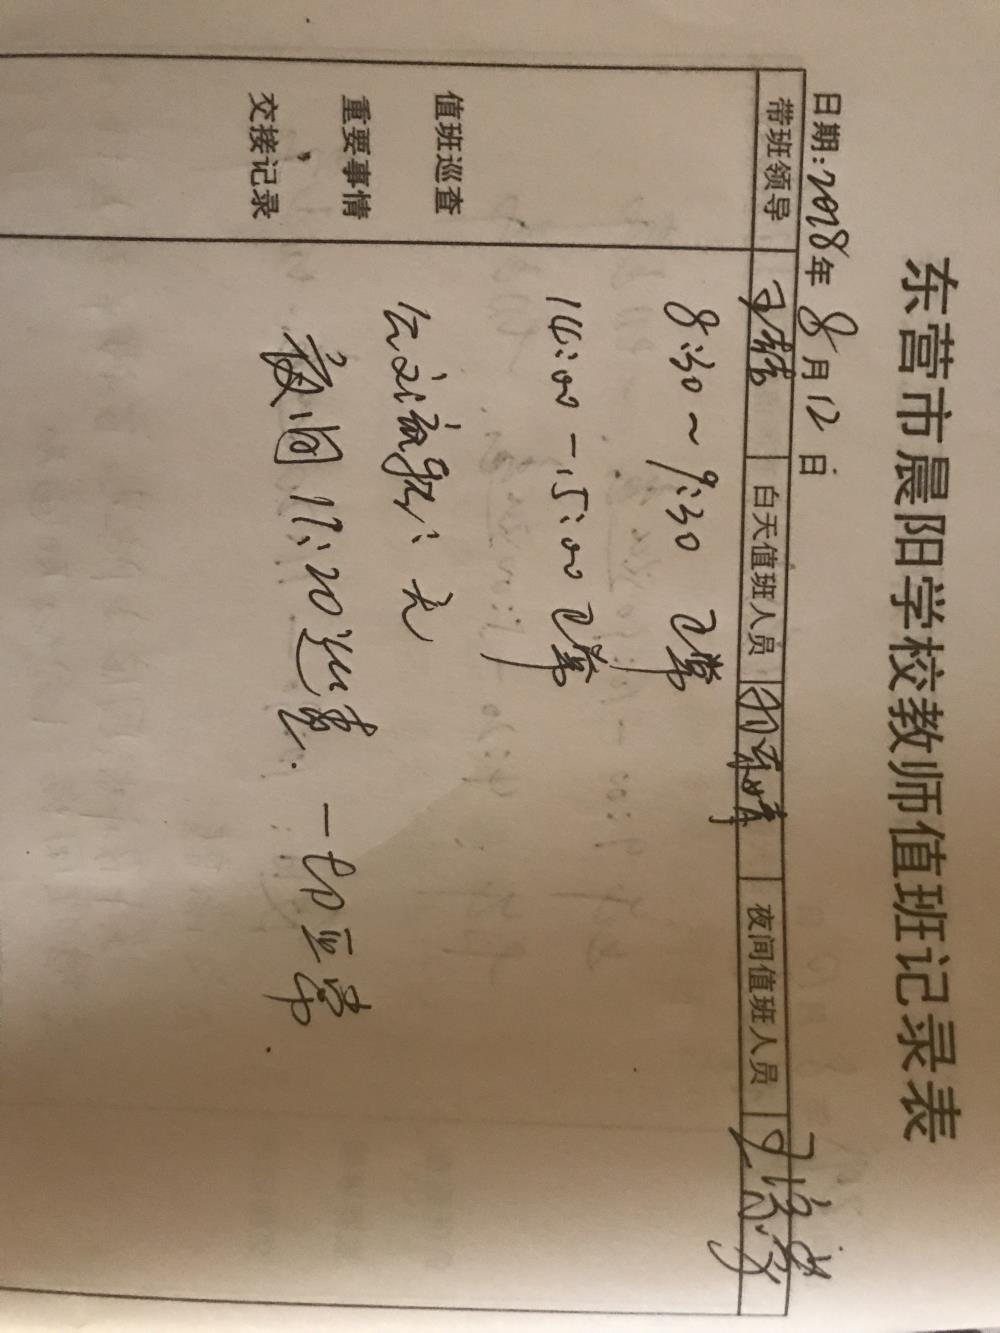 东营市晨阳学校教师值班记录表
日期:2018年8月12日
带班领导 白天值班人员 夜间值班人员
值班巡查
重要事情
交接记录
8:30~9:30 正常
14:00-15:00 正常
公文流转: 无
夜间17:20巡查. 一切正常